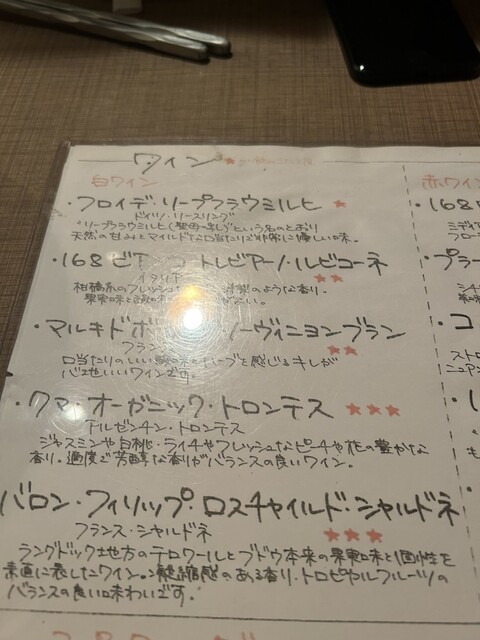 ワイン
白ワイン
・フロイデ・リープフラウミルヒ ★
ドイツ・リースリング
"リープフラウミルヒ(聖母の乳)"という名のとおり
天然の甘みとマイルドな口当たりで非常に優しい味。
・168ビア トレビアーノ・ルビコーネ
イタリア ★★
柑橘系のフレッシュ のような香り。
果実味と酸味
・マルキドボ ソーヴィニヨンブラン
フラン ★★
口当たりのいい ハーブを感じるキレが
心地いいワインです。
・クマ・オーガニック・トロンテス ★★★
アルゼンチン・トロンテス
ジャスミンや白桃・ライチやフレッシュなピーチや花の豊かな
香り。適度で芳醇な香りがバランスの良いワイン。
バロン・フィリップ・ロスチャイルド・シャルドネ
フランス・シャルドネ ★★★
ラングドック地方のテロワールとブドウ本来の果実味と個性を
素直に表したワイン。凝縮感のある香り・トロピカルフルーツの
バランスの良い味わいです。
赤ワイン
・168
ミディア
フロー
・プラ
・コ
ストロ
ニュアン